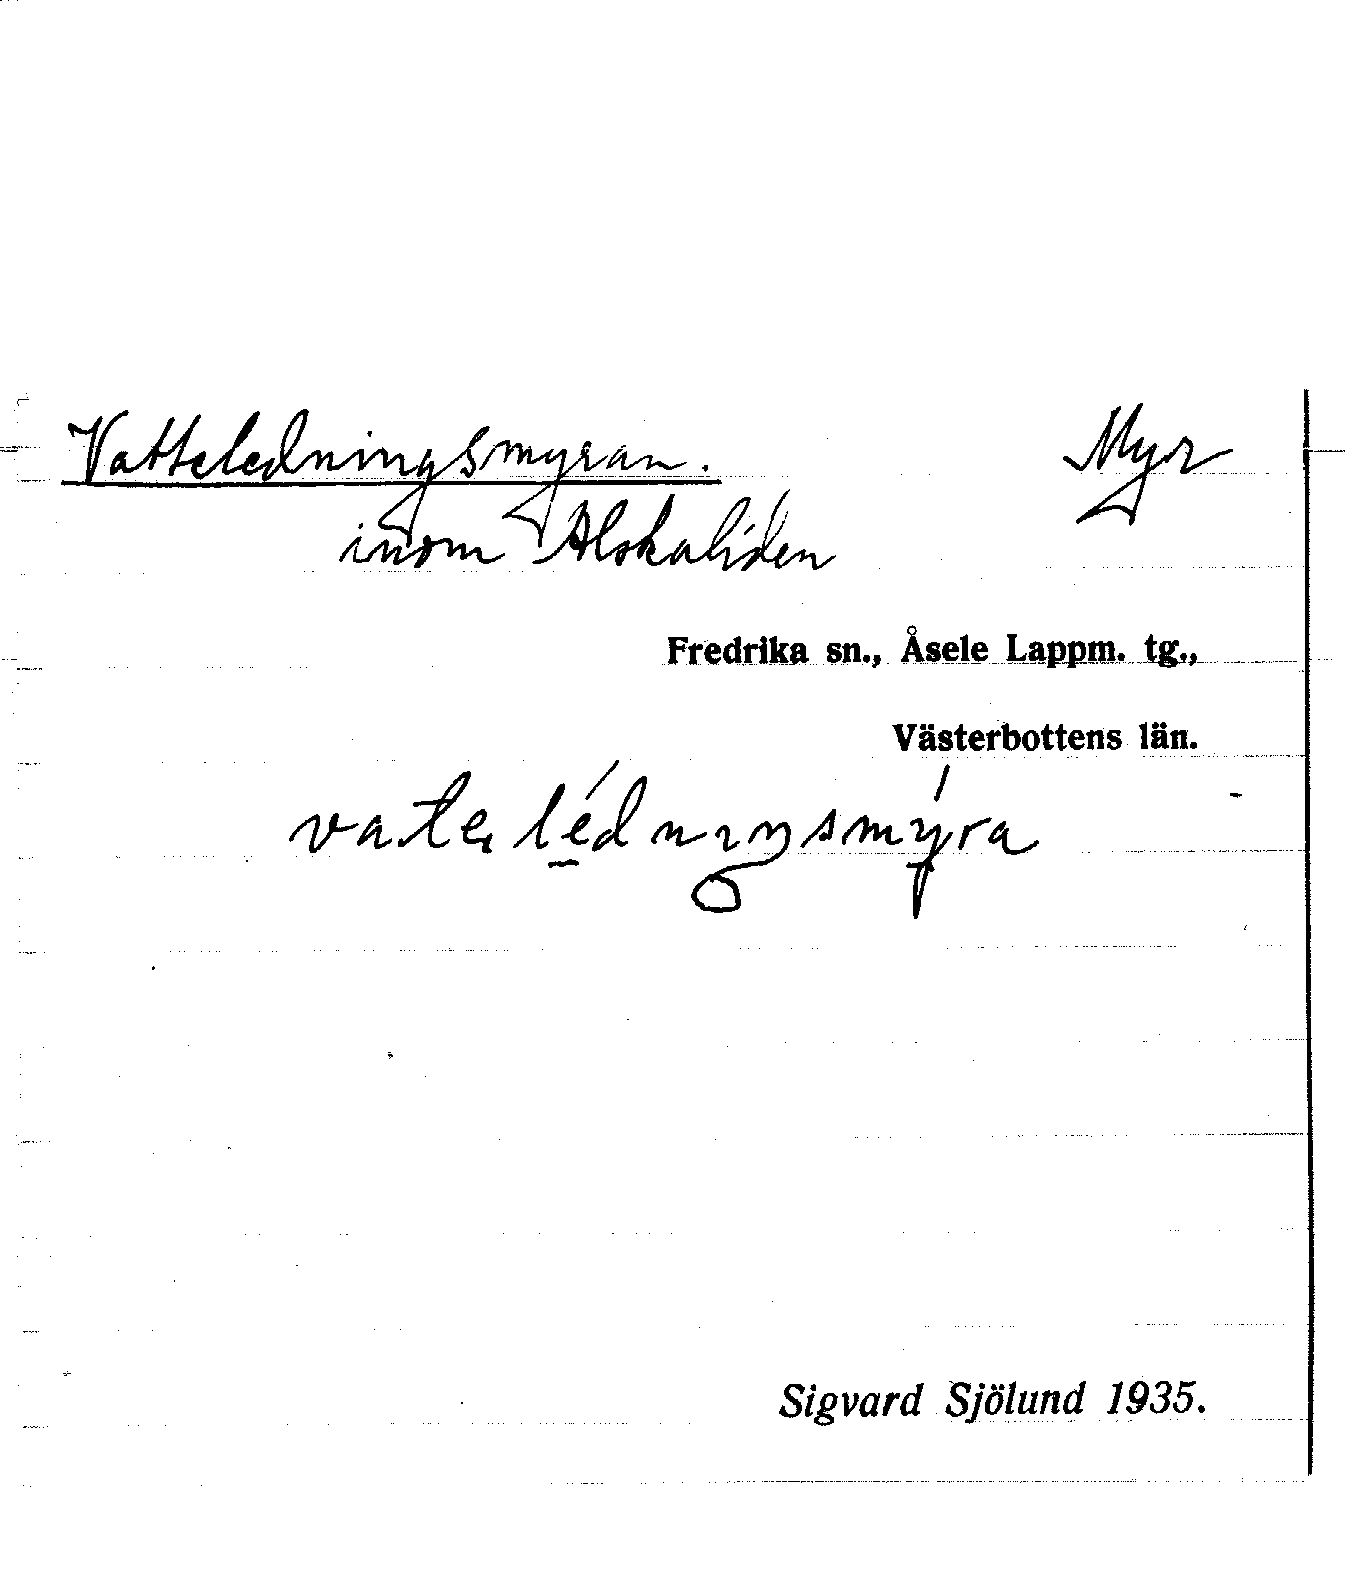 Vatteledningsmyran. Myr
inom Alskaliden
Fredrika sn., Åsele Lappm. tg.,
Västerbottens län.
vateḷédnıŋsmýra
Sigvard Sjölund 1935.